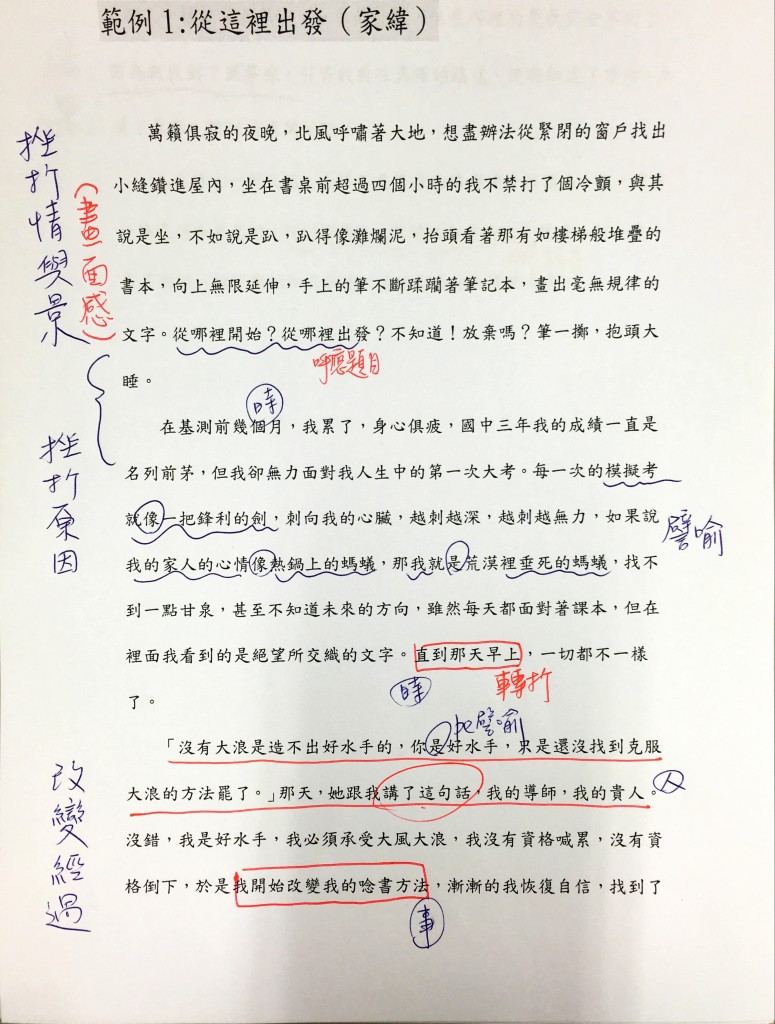 範例1:從這裡出發（家緯）
萬籟俱寂的夜晚，北風呼嘯著大地，想盡辦法從緊閉的窗戶找出
小縫鑽進屋內，坐在書桌前超過四個小時的我不禁打了個冷顫，與其
說是坐，不如說是趴，趴得像灘爛泥，抬頭看著那有如樓梯般堆疊的
書本，向上無限延伸，手上的筆不斷蹂躪著筆記本，畫出毫無規律的
文字。從哪裡開始？從哪裡出發？不知道！放棄嗎？筆一擲，抱頭大
睡。
挫折情與景
(畫面感)
呼應題目
時
在基測前幾個月，我累了，身心俱疲，國中三年我的成績一直是
名列前茅，但我卻無力面對我人生中的第一次大考。每一次的模擬考
就像一把鋒利的劍，刺向我的心臟，越刺越深，越刺越無力，如果說
我的家人的心情像熱鍋上的螞蟻，那我就是荒漠裡垂死的螞蟻，找不
到一點甘泉，甚至不知道未來的方向，雖然每天都面對著課本，但在
裡面我看到的是絕望所交織的文字。直到那天早上，一切都不一樣
了。
挫折原因
譬喻
時
轉折
譬喻
「沒有大浪是造不出好水手的，你是好水手，只是還沒找到克服
大浪的方法罷了。」那天，她跟我講了這句話，我的導師，我的貴人。
人
沒錯，我是好水手，我必須承受大風大浪，我沒有資格喊累，沒有資
格倒下，於是我開始改變我的唸書方法，漸漸的我恢復自信，找到了
改變經過
事